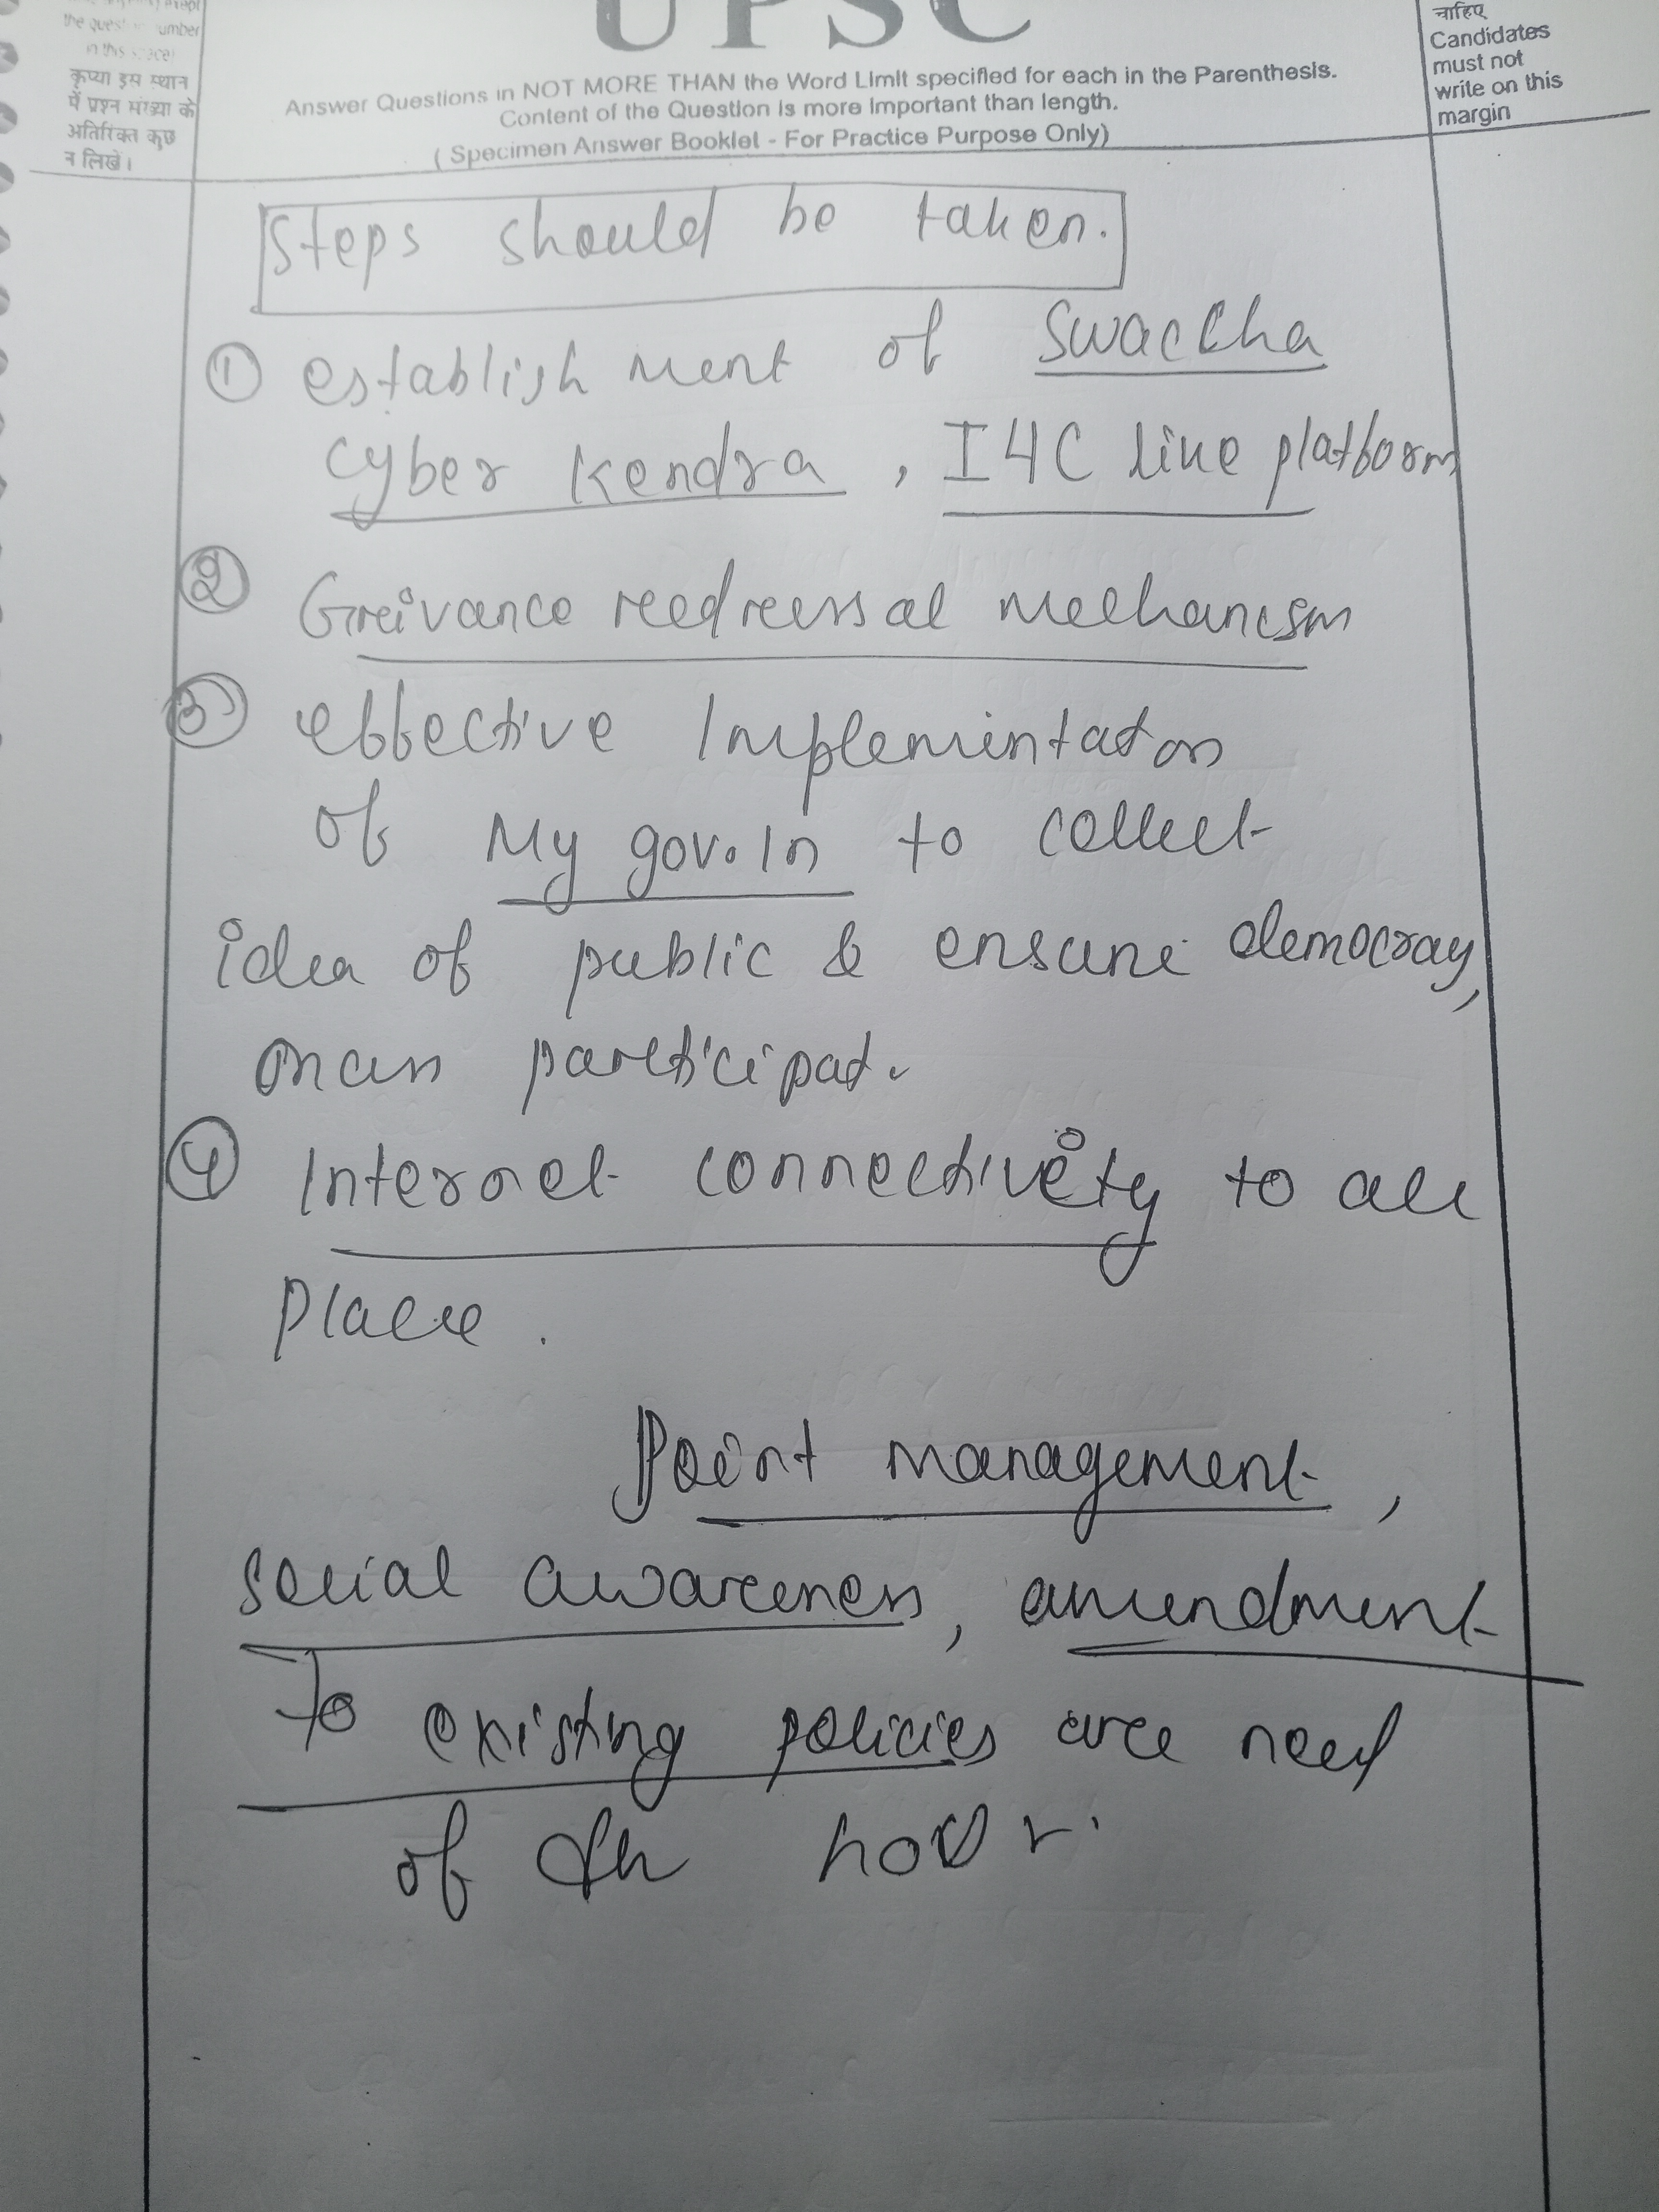 the question number
in this space)
कृप्या इस स्थान
में प्रश्न संख्या के
अतिरिक्त कुछ
न लिखें।
UPSC
Answer Questions in NOT MORE THAN the Word Limit specified for each in the Parenthesis.
Content of the Question is more Important than length.
( Specimen Answer Booklet - For Practice Purpose Only)
चाहिए
Candidates
must not
write on this
margin
Steps should be taken.
① establishment of Swachha
Cyber Kendra, I4C like platform
② Greivance reedressal mechanism
③ effective Implementation
of My gov.in to collect
idea of public & ensure democray,
mass participat.
④ Internet connectivity to all
place.
Point management,
social awareness, amendment
To existing policies are need
of the hour.